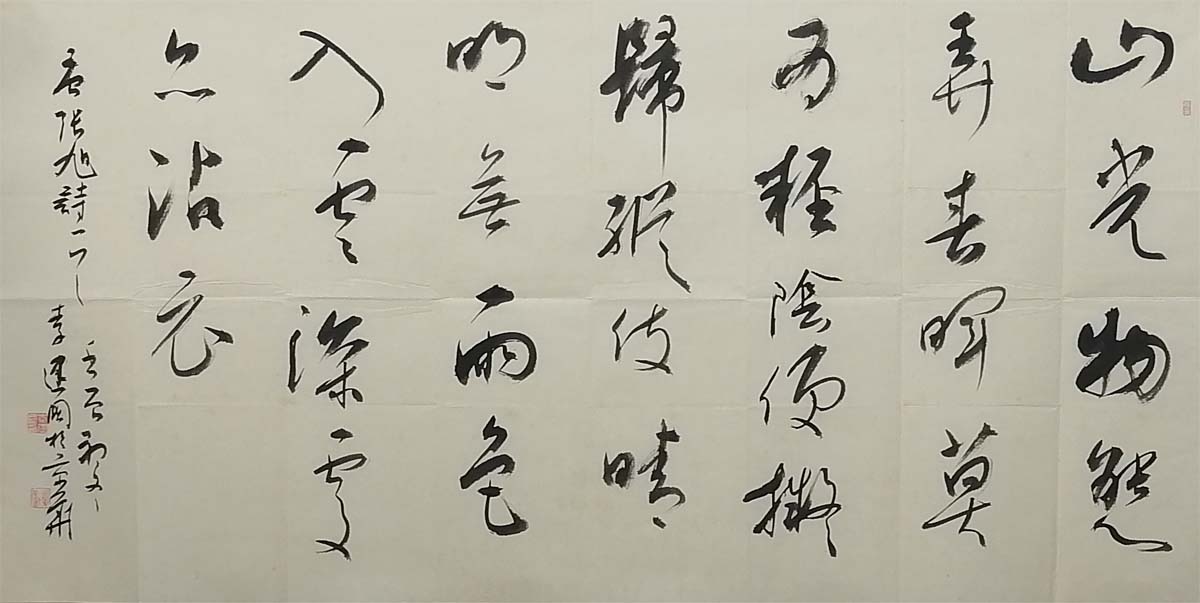 山光物態
弄春暉莫
為輕陰便擬
歸縱使晴
明無雨色
入雲深處
亦沾衣
張旭詩一首
李 國於京華